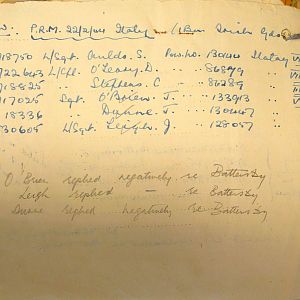 P.R.M. 22/2/44 Italy (1 Bn Irish Gds)
18750 L/Sgt. S. P.o.w. No. 130141 Stalag VI
722643 L/Cpl. O'Leary. D. " 86899 " VII
18825 " Stephens. C " 86289 "
17025 Sgt. O'Brien. J. " 133913 "
18336 " J. " 130447 "
30605 L/Sgt. J. " 128057 "
O'Brien replied negatively re Battersby
Leigh replied — re Battersby
Duane replied negatively re Battersby